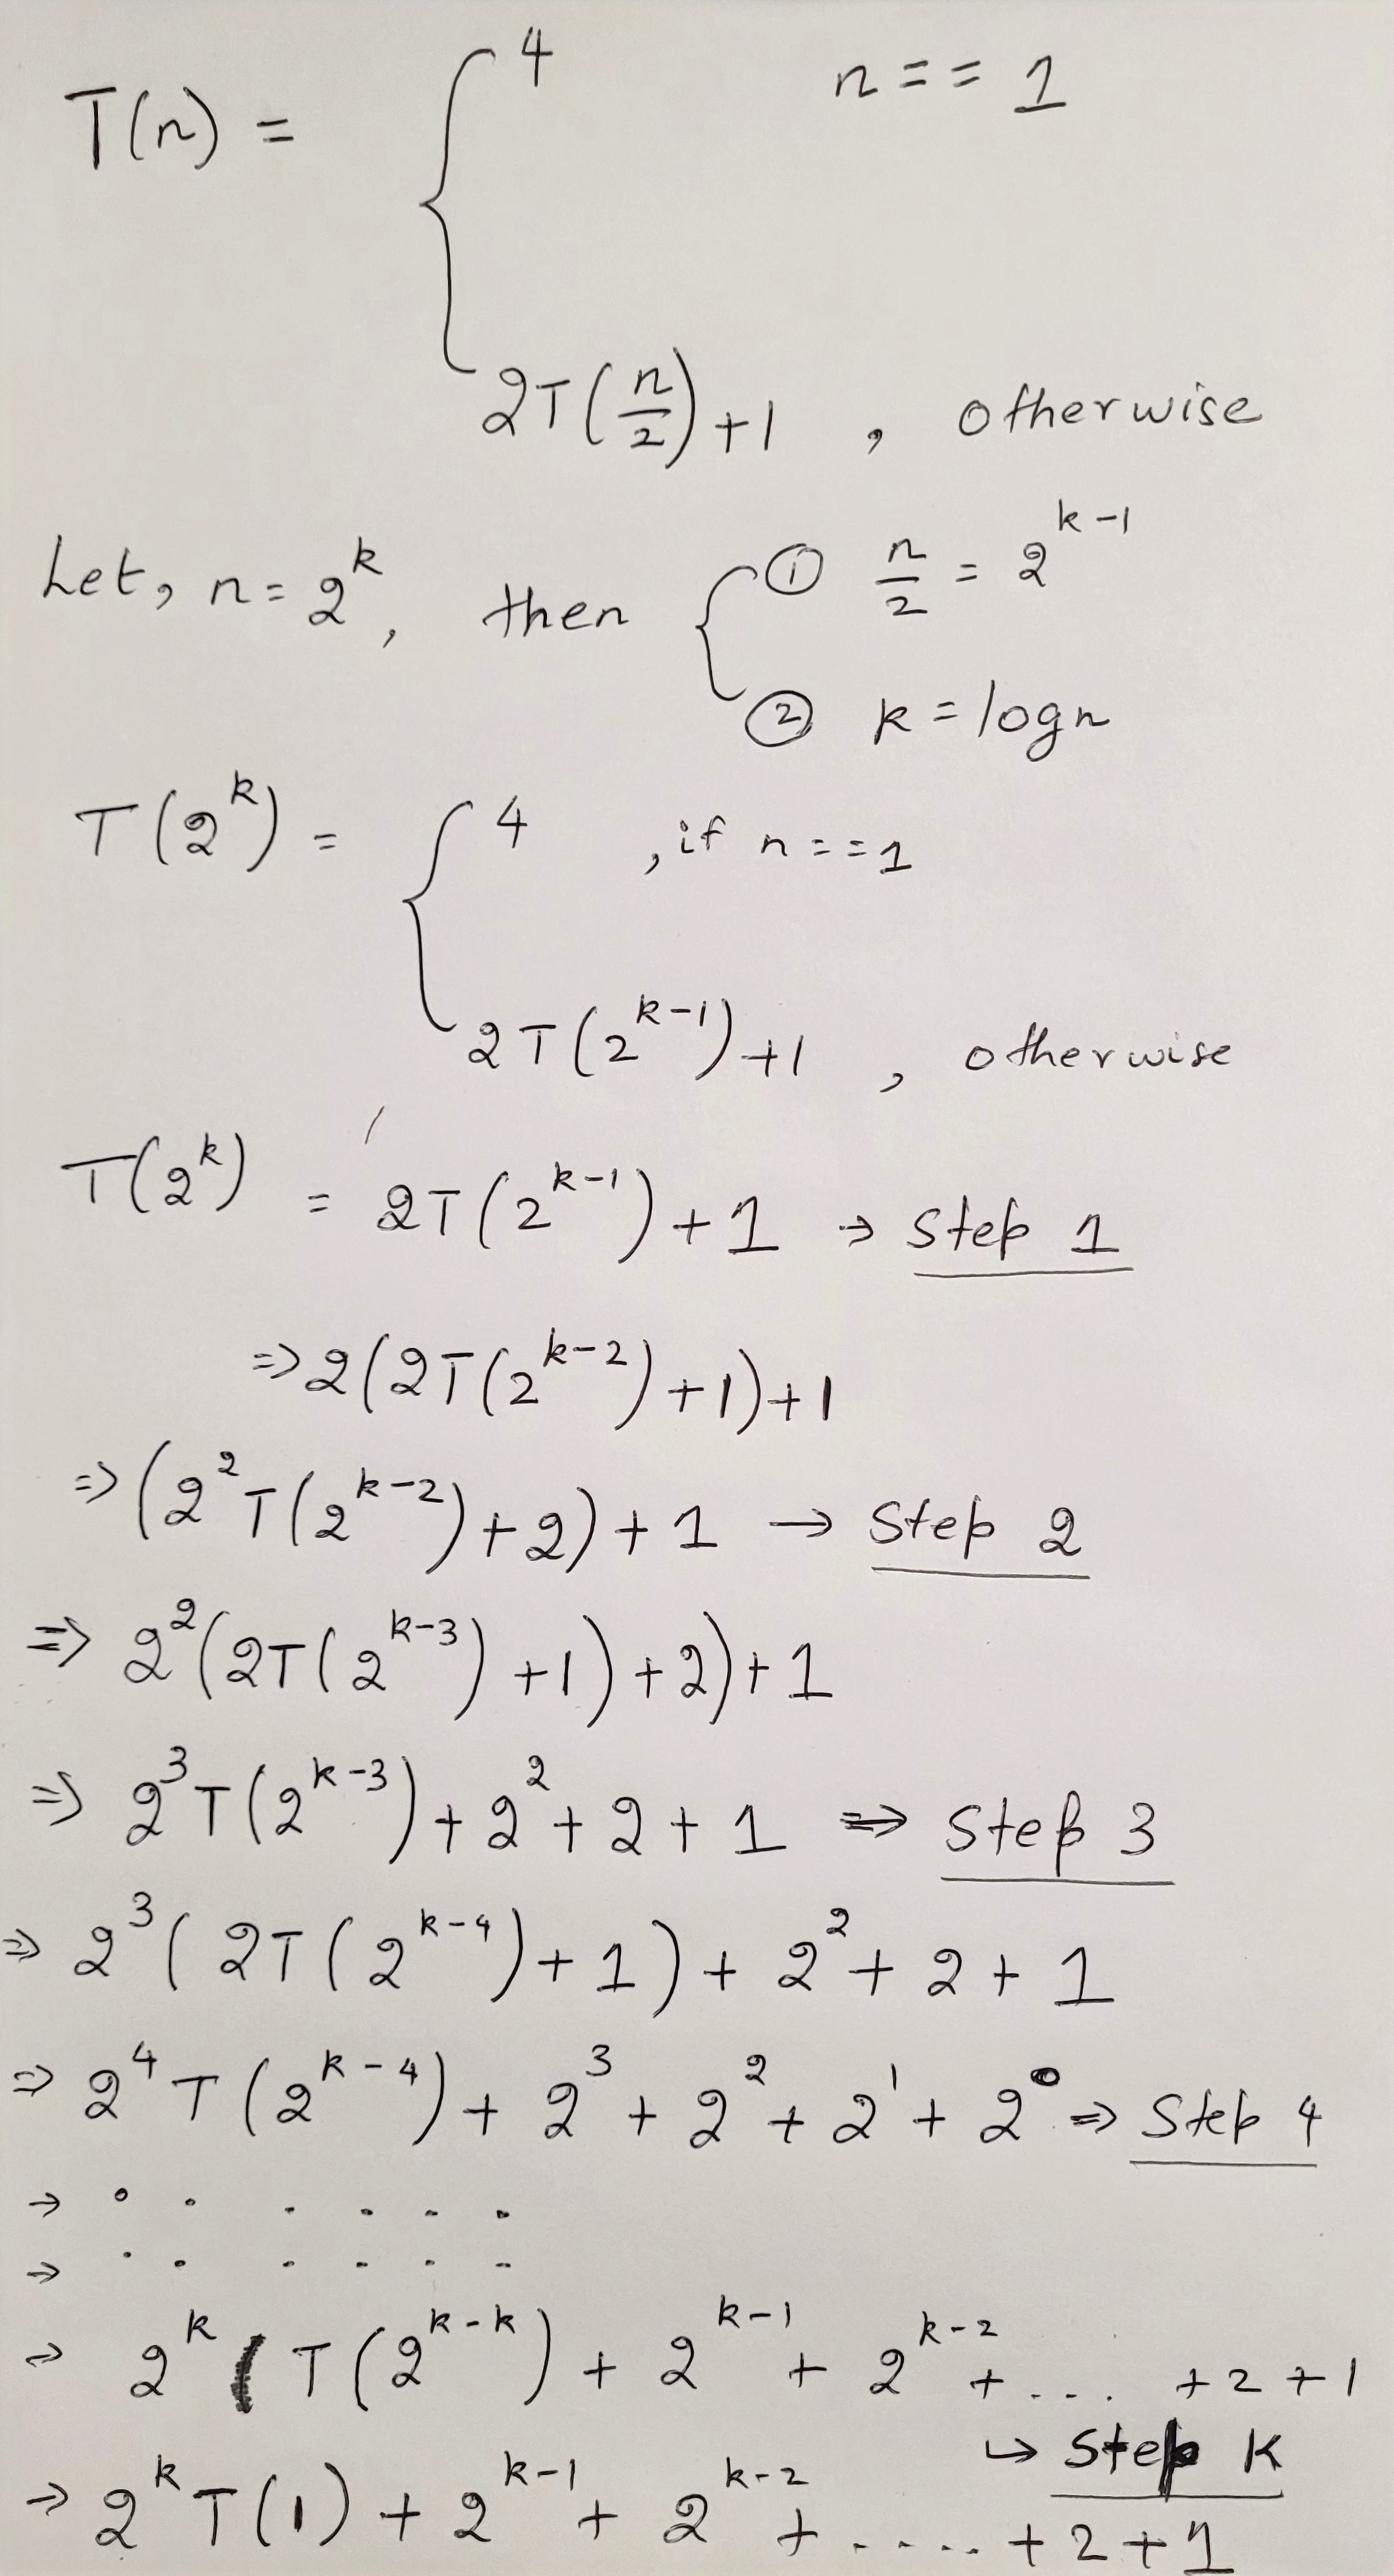 T(n) = { 4 n == 1
2T(n/2) +1 , otherwise
Let, n = 2^k, then { ① n/2 = 2^(k-1)
② k = logn
T(2^k) = { 4 , if n == 1
2T(2^(k-1)) +1 , otherwise
T(2^k) = 2T(2^(k-1)) + 1 → Step 1
⇒ 2(2T(2^(k-2)) +1) +1
⇒ (2^2 T(2^(k-2)) + 2) + 1 → Step 2
⇒ 2^2(2T(2^(k-3)) +1) +2) + 1
⇒ 2^3 T(2^(k-3)) + 2^2 + 2 + 1 ⇒ Step 3
⇒ 2^3 ( 2T(2^(k-4)) + 1 ) + 2^2 + 2 + 1
⇒ 2^4 T(2^(k-4)) + 2^3 + 2^2 + 2^1 + 2^0 ⇒ Step 4
→ . . . . . .
→ . . . . . .
→ 2^k T(2^(k-k)) + 2^(k-1) + 2^(k-2) + ... + 2 + 1
↳ Step K
→ 2^k T(1) + 2^(k-1) + 2^(k-2) + ..... + 2 + 1